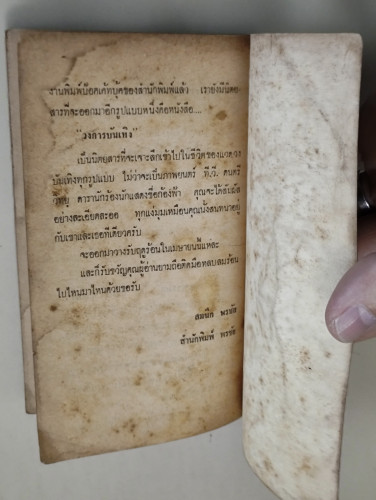 งานพิมพ์น๊อคเก้ทบุ๊คของสำนักพิมพ์แล้ว เรายังมีนิตย
สารที่จะออกมาอีกรูปแบบหนึ่งคือหนังสือ....
"วงการบันเทิง"
เป็นนิตยสารที่จะเจาะลึกเข้าไปในชีวิตของแวดวง
บันเทิงทุกรูปแบบ ไม่ว่าจะเป็นภาพยนตร์ ที.วี. ดนตรี
วิทยุ ดารานักร้องนักแสดงชื่อก้องฟ้า คุณจะได้สัมผัส
อย่างละเอียดละออ ทุกแง่มุมเหมือนคุณนั่งสนทนาอยู่
กับเขาและเธอทีเดียวครับ
จะออกมาวางรับฤดูร้อนในเมษายนนี้แหละ
และก็รับขวัญคุณผู้อ่านยามถือติดมือหลบลมร้อน
ไปไหนมาไหนด้วยขอรับ
สมนึก
สำนักพิมพ์